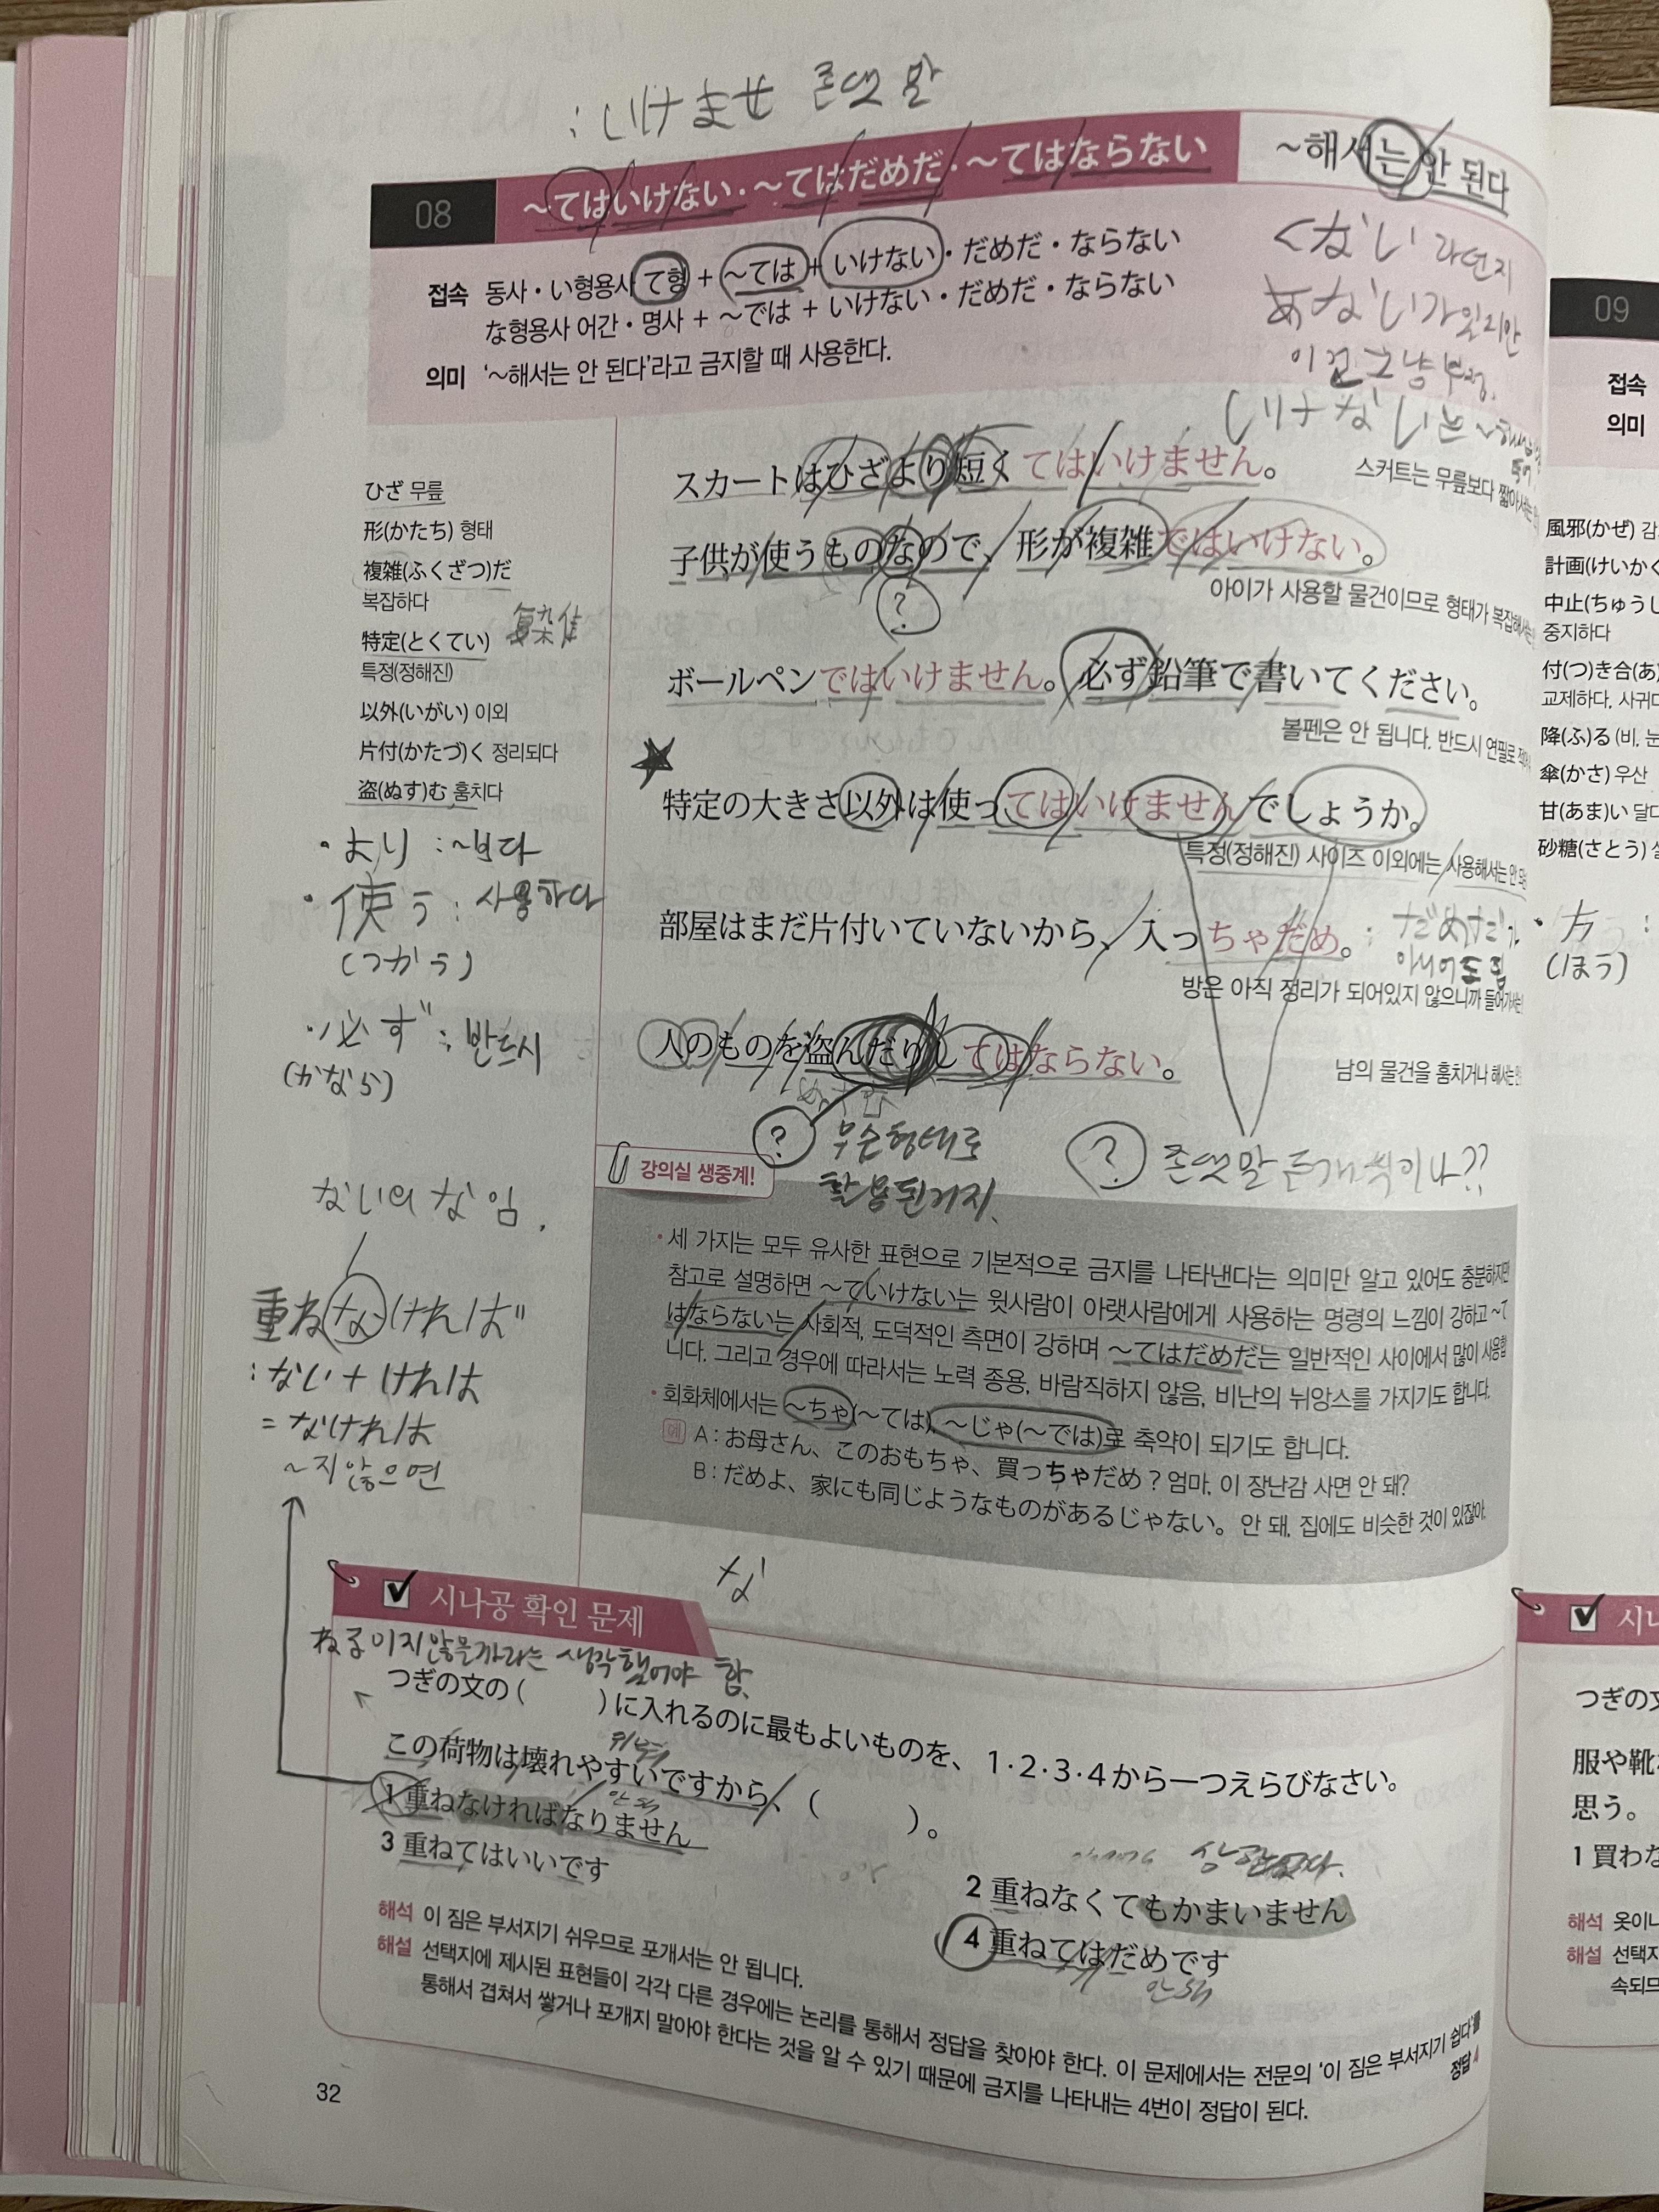 : いけませ 존댓말
08 ~てはいけない・~てはだめだ・~てはならない ~해서는 안 된다
접속 동사・い형용사 て형 + ~ては + いけない・だめだ・ならない
な형용사 어간・명사 + ~では + いけない・だめだ・ならない
의미 '~해서는 안 된다'라고 금지할 때 사용한다.
くない 라던지
あない가 있지만
이건 그냥 부정.
いけない는
ひざ 무릎
形(かたち) 형태
複雑(ふくざつ)だ
복잡하다
特定(とくてい)
특정(정해진)
以外(いがい) 이외
片付(かたづ)く 정리되다
盗(ぬす)む 훔치다
・より : ~보다
・使う : 사용하다
(つかう)
・必ず : 반드시
(かなら)
ないの な 임.
重ねなければ
: ない + ければ
= なければ
~지 않으면
スカートはひざより短くてはいけません。
스커트는 무릎보다 짧아서는
子供が使うものなので、形が複雑ではいけない。
아이가 사용할 물건이므로 형태가 복잡해서는
?
ボールペンではいけません。必ず鉛筆で書いてください。
볼펜은 안 됩니다. 반드시 연필로
特定の大きさ以外は使ってはいけませんでしょうか。
특정(정해진) 사이즈 이외에는 사용해서는 안
部屋はまだ片付いていないから、入っちゃだめ。
: だめだ가
아니어도 됨
방은 아직 정리가 되어있지 않으니까 들어가서는
人のものを盗んだりしてはならない。
남의 물건을 훔치거나 해서는
? 무슨 형태로
활용된거지.
? 존댓말 두개 씩이나??
강의실 생중계!
・세 가지는 모두 유사한 표현으로 기본적으로 금지를 나타낸다는 의미만 알고 있어도 충분하지만
참고로 설명하면 ~ていけない는 윗사람이 아랫사람에게 사용하는 명령의 느낌이 강하고 ~て
はならない는 사회적, 도덕적인 측면이 강하며 ~てはだめだ는 일반적인 사이에서 많이 사용합
니다. 그리고 경우에 따라서는 노력 종용, 바람직하지 않음, 비난의 뉘앙스를 가지기도 합니다.
・회화체에서는 ~ちゃ(~ては), ~じゃ(~では)로 축약이 되기도 합니다.
예 A : お母さん、このおもちゃ、買っちゃだめ? 엄마, 이 장난감 사면 안 돼?
B : だめよ、家にも同じようなものがあるじゃない。 안 돼, 집에도 비슷한 것이 있잖아.
な
시나공 확인 문제
생각했어야 함.
つぎの文の( )に入れるのに最もよいものを、1・2・3・4から一つえらびなさい。
この荷物は壊れやすいですから、( )。
1 重ねなければなりません
2 重ねなくてもかまいません
상관없다.
3 重ねてはいいです
4 重ねてはだめです
안돼
해석 이 짐은 부서지기 쉬우므로 포개서는 안 됩니다.
해설 선택지에 제시된 표현들이 각각 다른 경우에는 논리를 통해서 정답을 찾아야 한다. 이 문제에서는 전문의 '이 짐은 부서지기 쉽다'를
통해서 겹쳐서 쌓거나 포개지 말아야 한다는 것을 알 수 있기 때문에 금지를 나타내는 4번이 정답이 된다.
정답 4
32
09
접속
의미
風邪(かぜ) 감
計画(けいかく
中止(ちゅうし
중지하다
付(つ)き合(あ)
교제하다, 사귀다
降(ふ)る (비, 눈
傘(かさ) 우산
甘(あま)い 달다
砂糖(さとう) 설
・方 :
(ほう)
시나
つぎの文
服や靴
思う。
1 買わな
해석 옷이나
해설 선택지
속되므